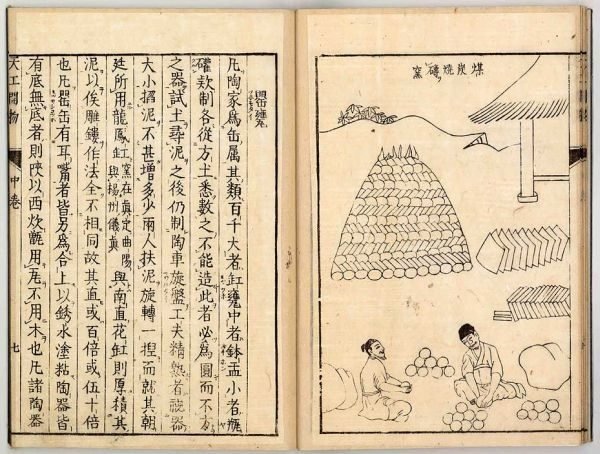 煤炭燒磚窯
罌甕
凡陶家爲缶属其類百千大者缸甕中者鉢盂小者瓶
罐款制各從方土悉數之不能造此者必爲圓而不方
之器試土尋泥之後仍制陶車旋盤工夫精熟者視器
大小掐泥不甚增多少兩人扶泥旋轉一捏而就其朝
廷所用龍鳳缸窯在眞定曲陽與楊州儀眞與南直花缸則厚積其
泥以俟雕鏤作法全不相同故其直或百倍或伍十倍
也凡罌缶有耳嘴者皆另爲合上以銹水塗粘陶器皆
有底無底者則陝以西炊甑用瓦不用木也凡諸陶器
天工開物 中卷 七